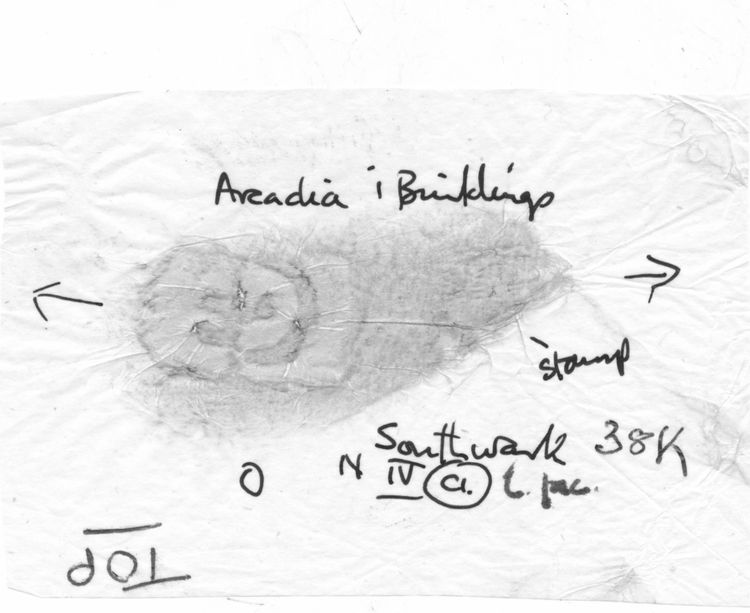 Arcadia Buildings
stamp
Southwark 38K
O N IV
TOP